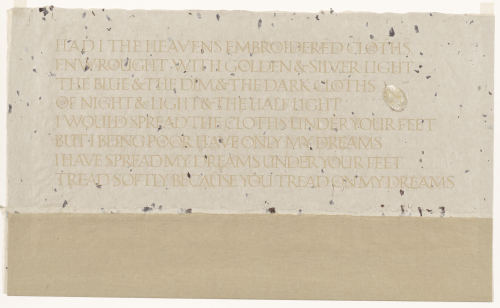 HAD I THE HEAVENS EMBROIDERED CLOTHS
ENWROUGHT WITH GOLDEN & SILVER LIGHT
THE BLUE & THE DIM & THE DARK CLOTHS
OF NIGHT & LIGHT & THE HALF LIGHT
I WOULD SPREAD THE CLOTHS UNDER YOUR FEET
BUT I BEING POOR HAVE ONLY MY DREAMS
I HAVE SPREAD MY DREAMS UNDER YOUR FEET
TREAD SOFTLY BECAUSE YOU TREAD ON MY DREAMS